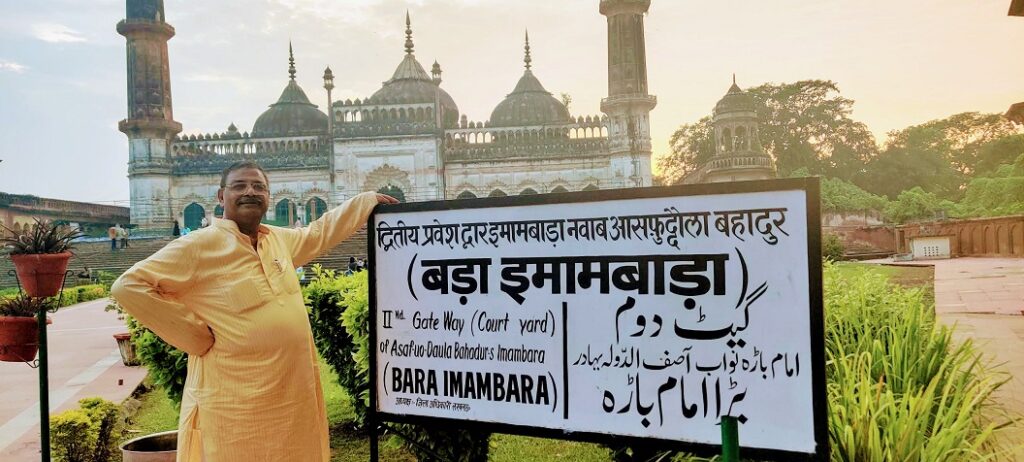 द्वितीय प्रवेश द्वार इमामबाड़ा नवाब आसफुद्दौला बहादुर
(बड़ा इमामबाड़ा)
II Nd. Gate Way (Court yard)
of Asaf-uo-Daula Bahadur-s Imambara
(BARA IMAMBARA)
अध्यक्ष - जिला अधिकारी लखनऊ
گیٹ دوم
امام باڑہ نواب آصف الدّولہ بہادر
بڑا امام باڑہ